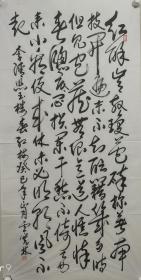 红酥肯放琼苞碎探著南
枝开遍未不知酝藉几多时
但见包藏无限意道人憔悴
春窗底闷损阑干愁不倚要
来小酌便来休未必明朝风不
起 李清照玉楼春红梅癸巳年